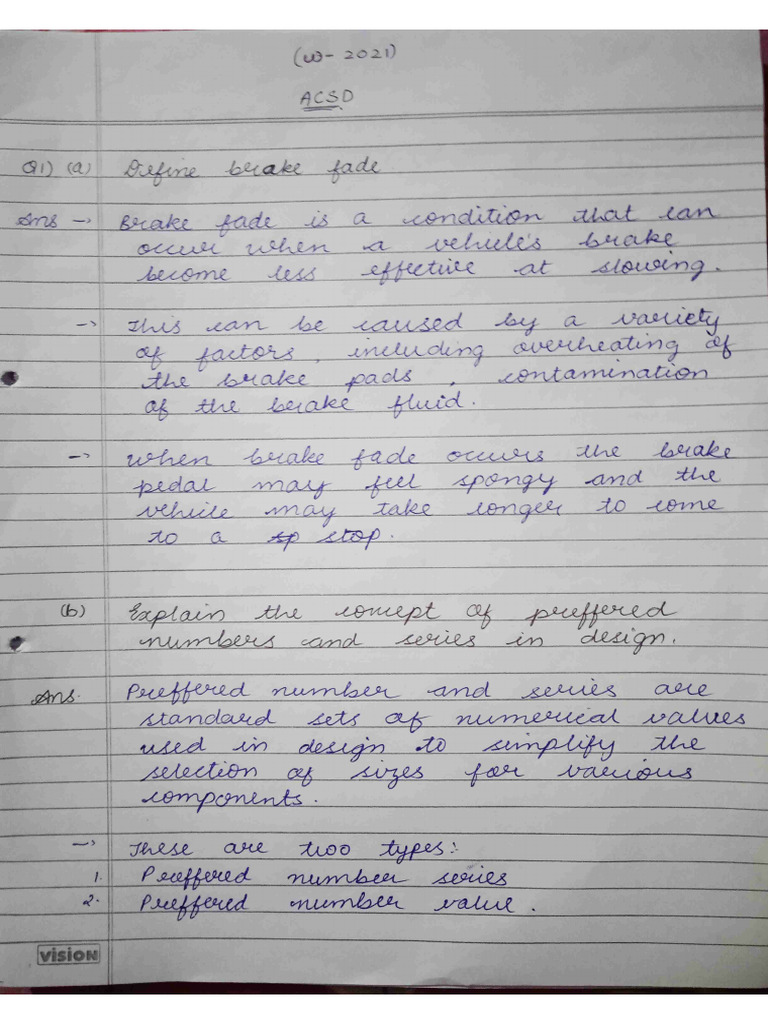 (W-2021)
ACSD
Q1) (a) Define brake fade
Ans → Brake fade is a condition that can
occur when a vehicle's brake
become less effective at slowing.
→ This can be caused by a variety
of factors, including overheating of
the brake pads, contamination
of the brake fluid.
→ When brake fade occurs the brake
pedal may feel spongy and the
vehicle may take longer to come
to a sp stop.
(b) Explain the concept of preffered
numbers and series in design.
Ans. Preffered number and series are
standard sets of numerical values
used in design to simplify the
selection of sizes for various
components.
→ These are two types:
1. Preffered number series
2. Preffered number value.
vision